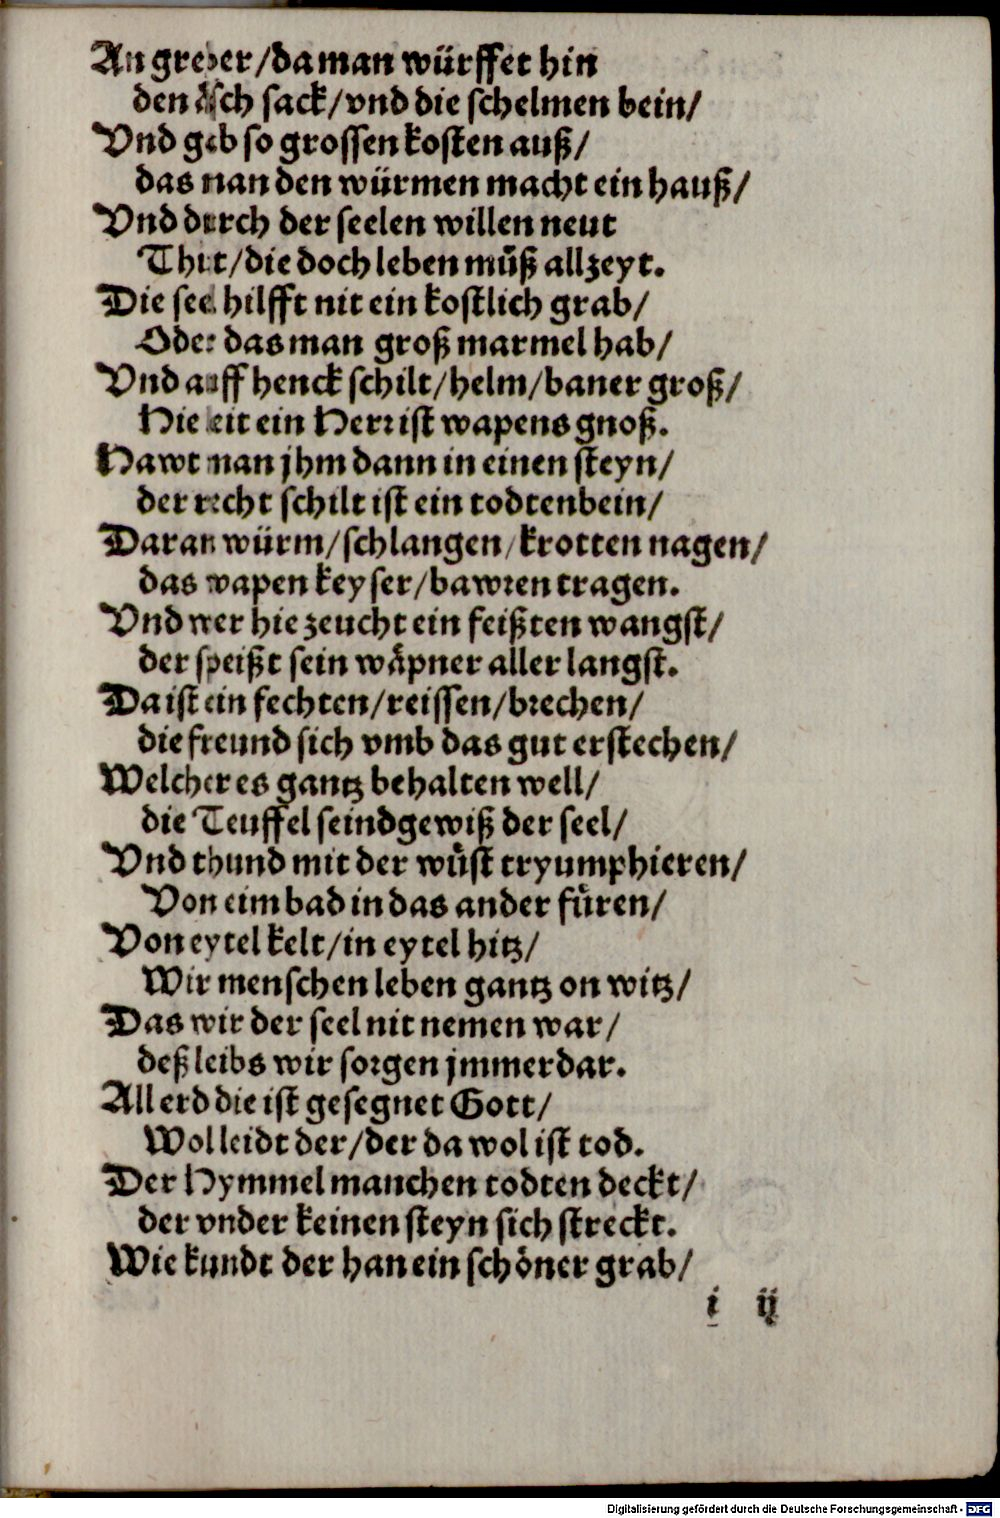 An greber/da man würffet hin
den åsch sack/vnd die schelmen bein/
Vnd geb so grossen kosten auß/
das man den würmen macht ein hauß/
Vnd durch der seelen willen neut
Thut/die doch leben můß allzeyt.
Die seel hilfft nit ein kostlich grab/
Oder das man groß marmel hab/
Vnd auff henck schilt/helm/baner groß/
Hie leit ein Herr ist wapens gnoß.
Hawt man jhm dann in einen steyn/
der recht schilt ist ein todtenbein/
Daran würm/schlangen/krotten nagen/
das wapen keyser/bawren tragen.
Vnd wer hie zeucht ein feißten wangst/
der speißt sein wåpner aller langst.
Da ist ein fechten/reissen/brechen/
die freund sich vmb das gut erstechen/
Welcher es gantz behalten well/
die Teuffel seind gewiß der seel/
Vnd thund mit der wůst tryumphieren/
Von eim bad in das ander fůren/
Von eytel kelt/in eytel hitz/
Wir menschen leben gantz on witz/
Das wir der seel nit nemen war/
deß leibs wir sorgen jmmerdar.
All erd die ist gesegnet Gott/
Wol leidt der/der da wol ist tod.
Der Hymmel manchen todten deckt/
der vnder keinen steyn sich streckt.
Wie kundt der han ein schöner grab/
i ij
Digitalisierung gefördert durch die Deutsche Forschungsgemeinschaft - DFG